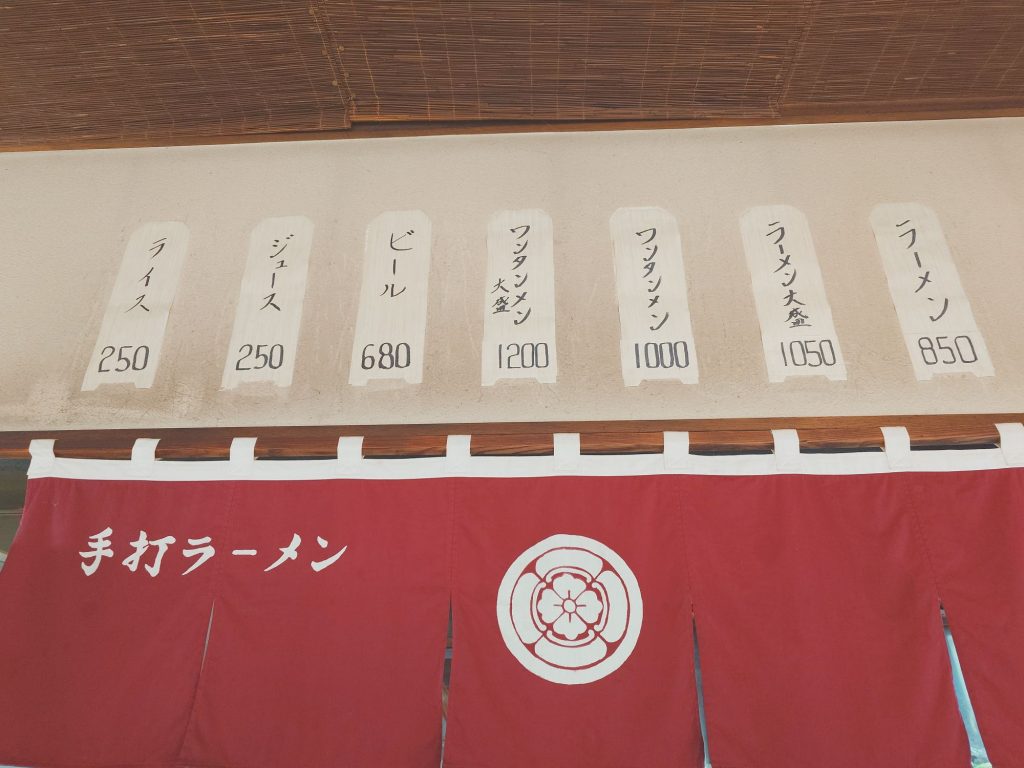 ラーメン
850
ラーメン大盛
1050
ワンタンメン
1000
ワンタンメン
大盛
1200
ビール
680
ジュース
250
ライス
250
手打ラーメン